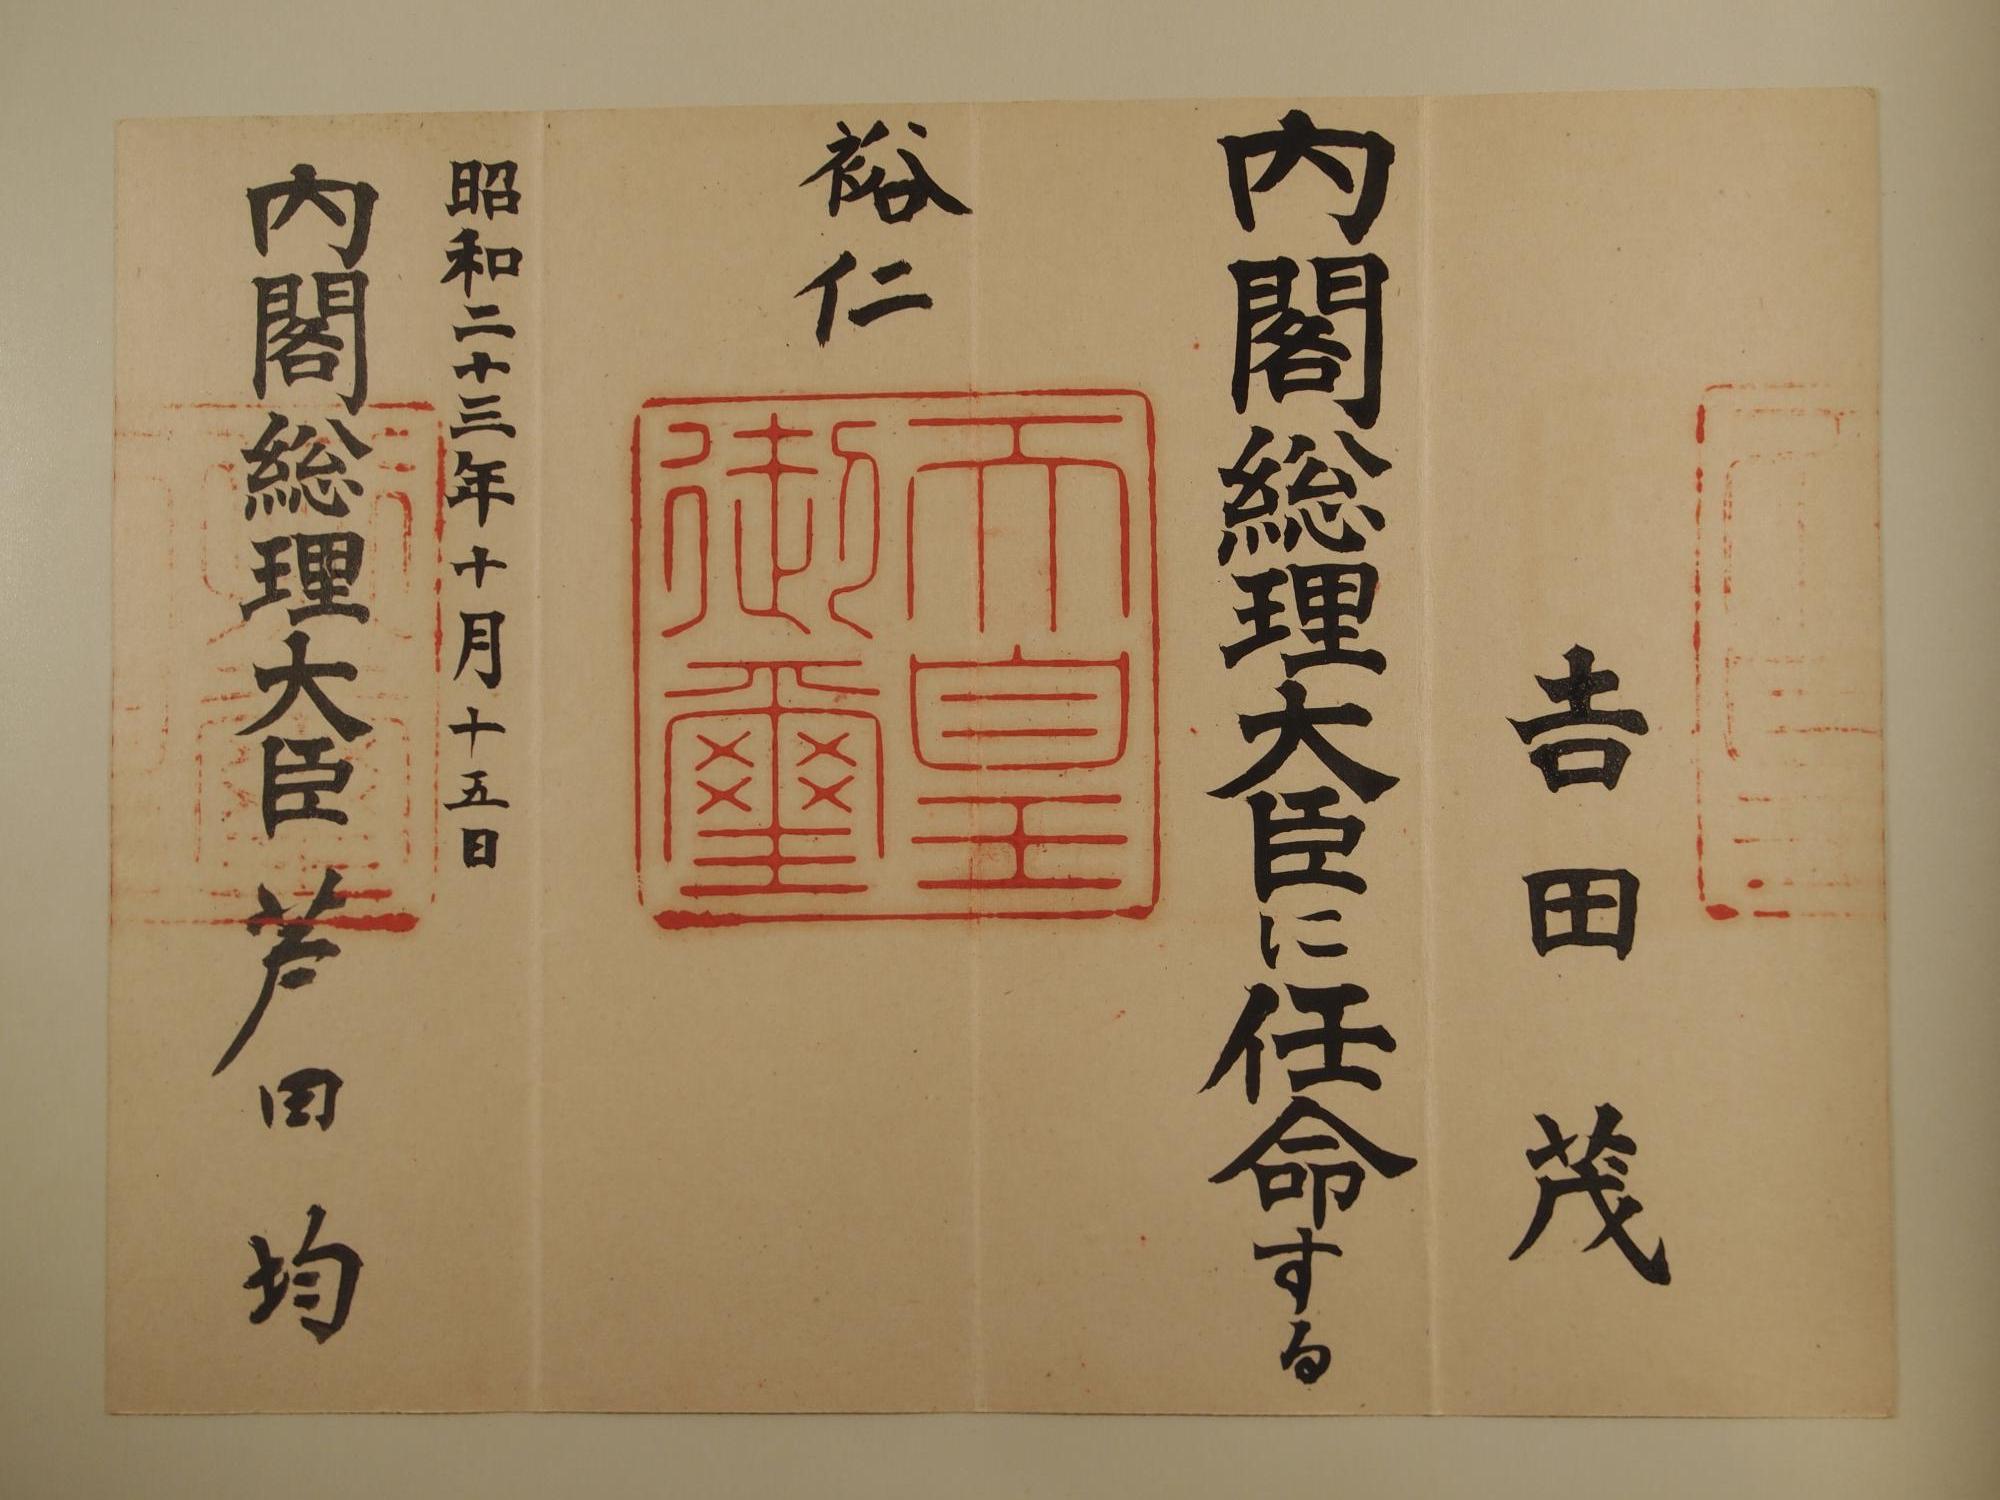 吉田茂
内閣総理大臣に任命する
裕仁
天皇御璽
昭和二十三年十月十五日
内閣総理大臣芦田均